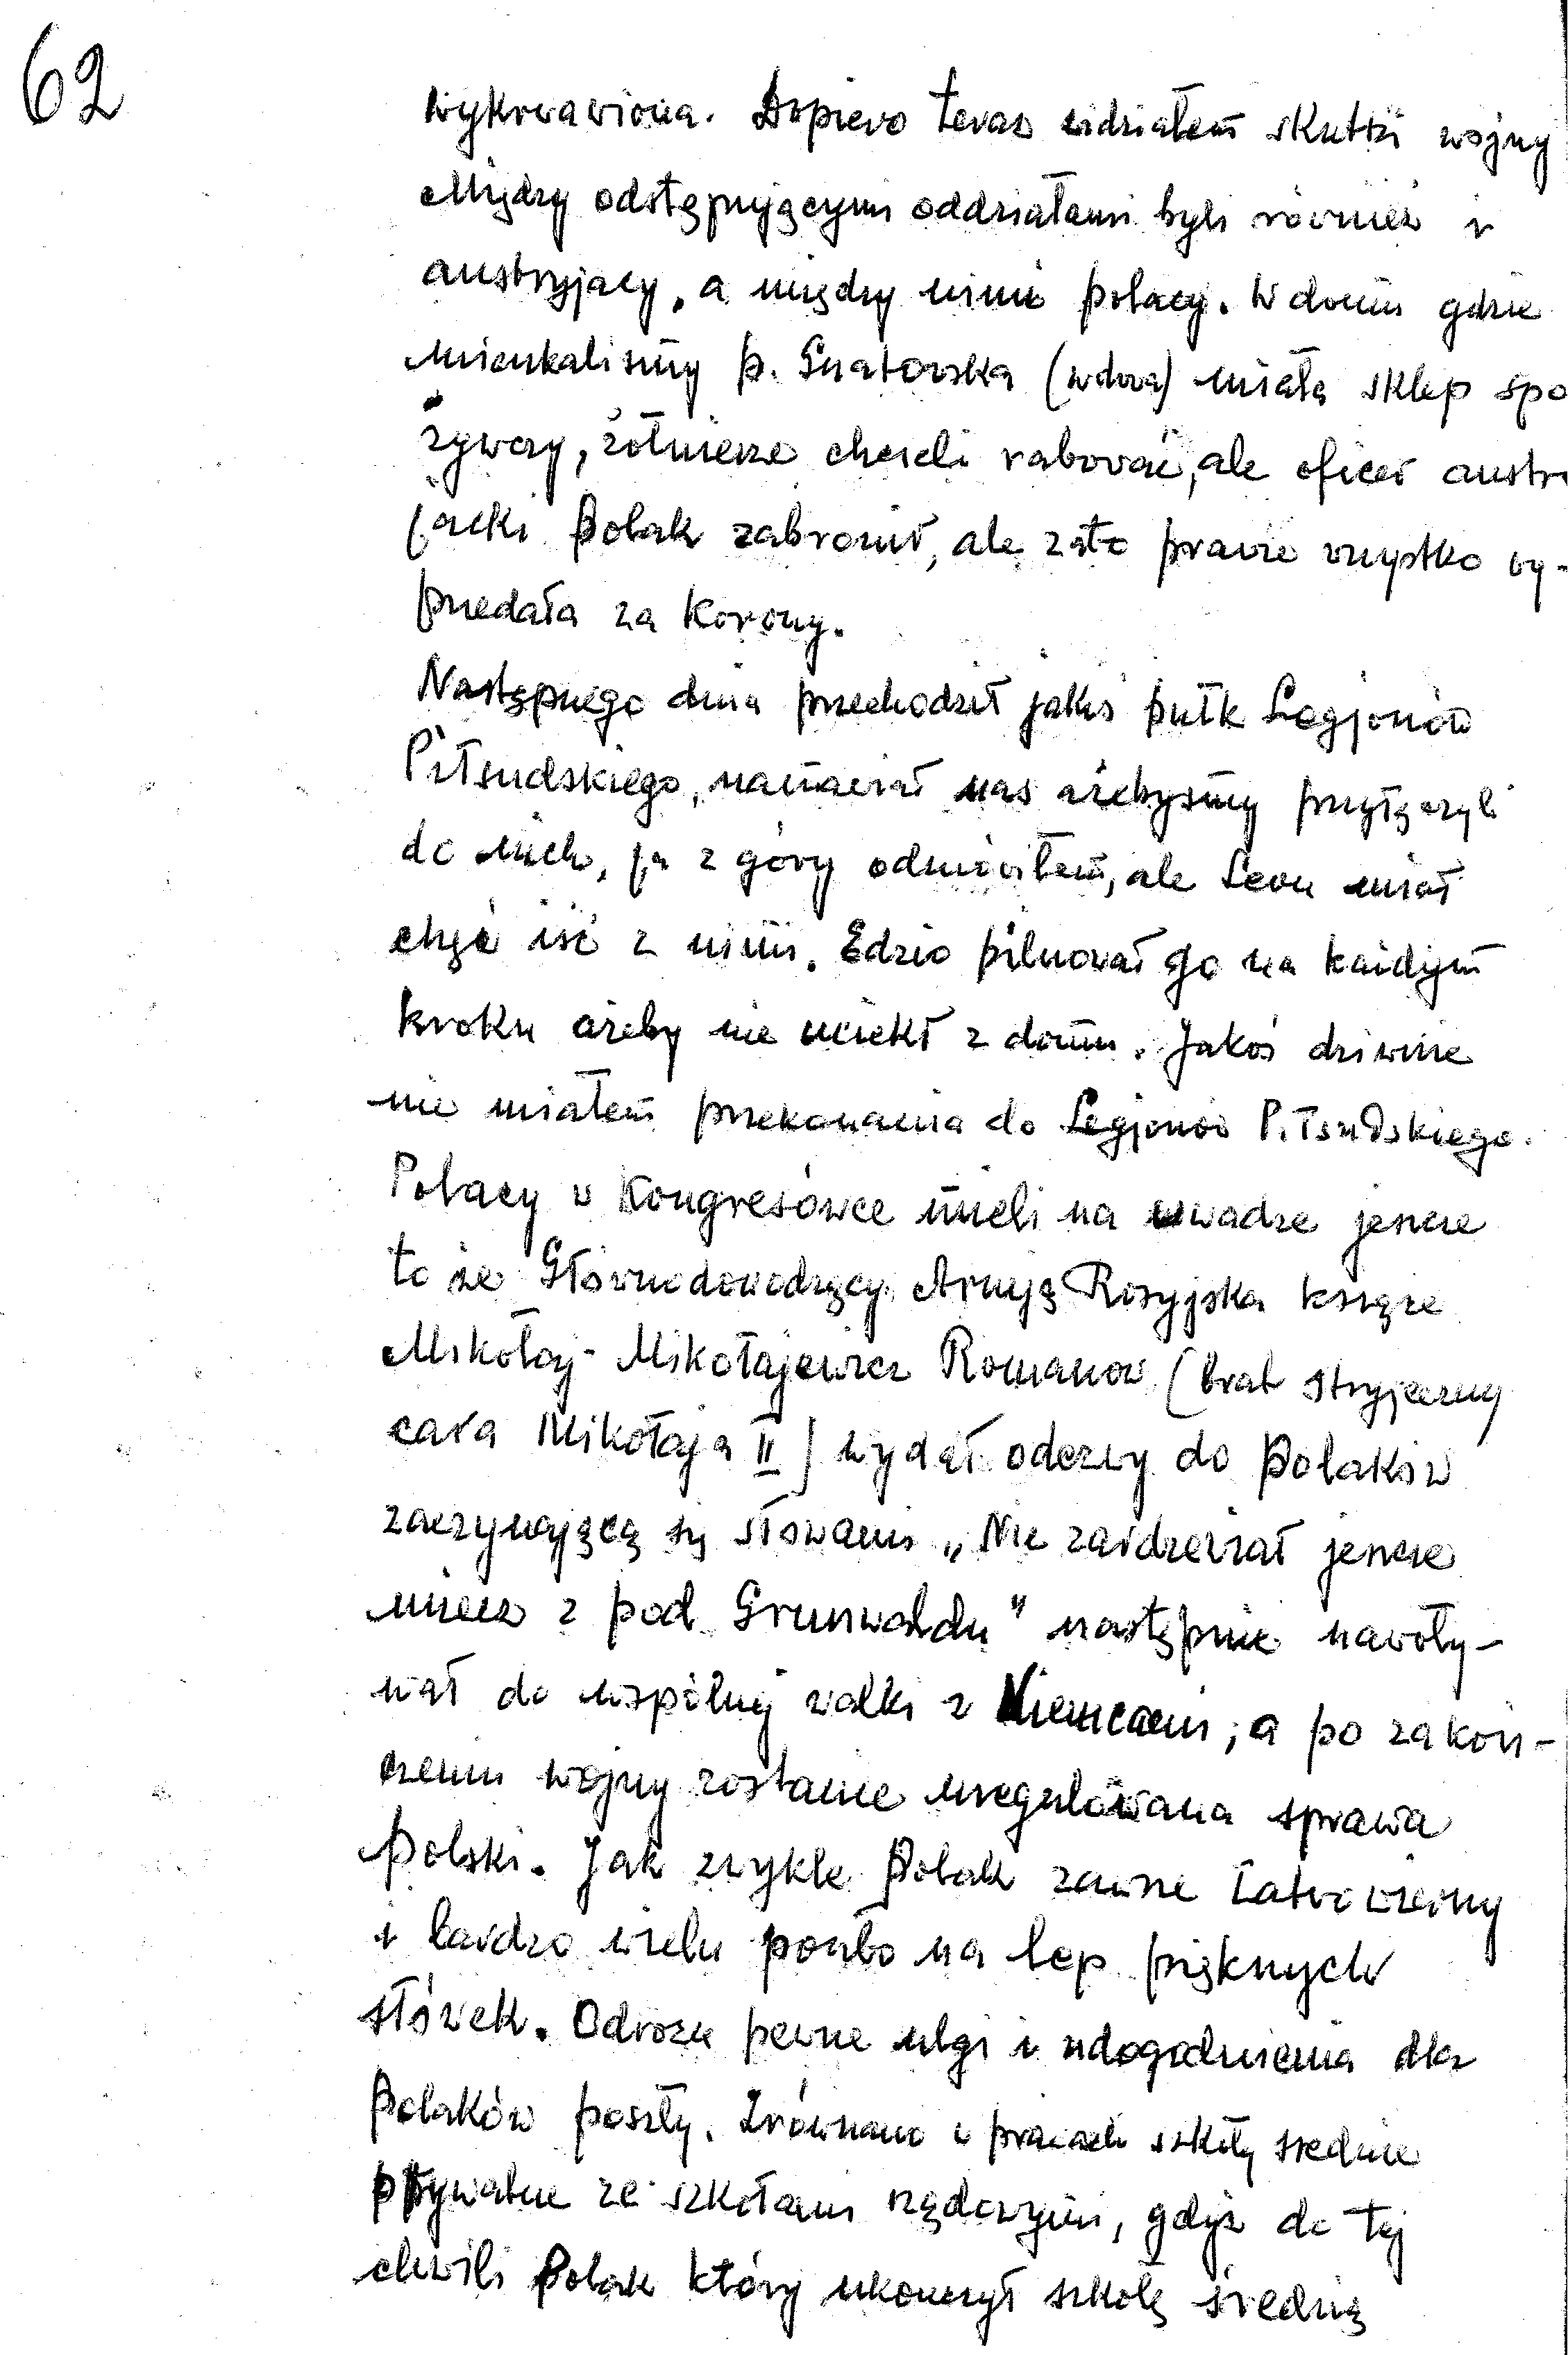 62
wykrwawiona. Dopiero teraz widziałem skutki wojny
Między odstępującymi oddziałami byli również i
austryjacy, a między nimi polacy. W domu gdzie
mieszkaliśmy p. Gnatowska (wdowa) miała sklep spo
żywczy, żołnierze chcieli rabować, ale oficer austr
jacki Polak zabronił, ale zato prawie wszystko wy-
przedała za korony.
Następnego dnia przechodził jakiś pułk Legjonów
Piłsudskiego, namawiał nas ażebyśmy przyłączyli
do nich, ja z góry odmówiłem, ale Leon miał
chęć iść z nimi. Edzio pilnował go na każdym
kroku ażeby nie uciekł z domu. Jakoś dziwnie
nie miałem przekonania do Legjonów Piłsudskiego.
Polacy w Kongresówce mieli na uwadze jeszcze
to że Głównodowodzący Armją Rosyjska książe
Mikołaj-Mikołajewicz Romanow (brat stryjeczny
cara Mikołaja II) wydał odezwy do Polaków
zaczynającą się słowami „Nie zardzewiał jeszcze
miecz z pod Grunwaldu" następnie nawoły-
wał do wspólnej walki z Niemcami, a po zakoń-
czeniu wojny zostanie uregulowana sprawa
Polski. Jak zwykle Polak zawsze łatwowierny
i bardzo wielu poszło na lep pięknych
słówek. Odrazu pewne ulgi i udogodnienia dla
Polaków poszły. Zrównano w prawach szkoły średnie
prywatne ze szkołami rządowymi, gdyż do tej
chwili Polak który ukończył szkołę średnią